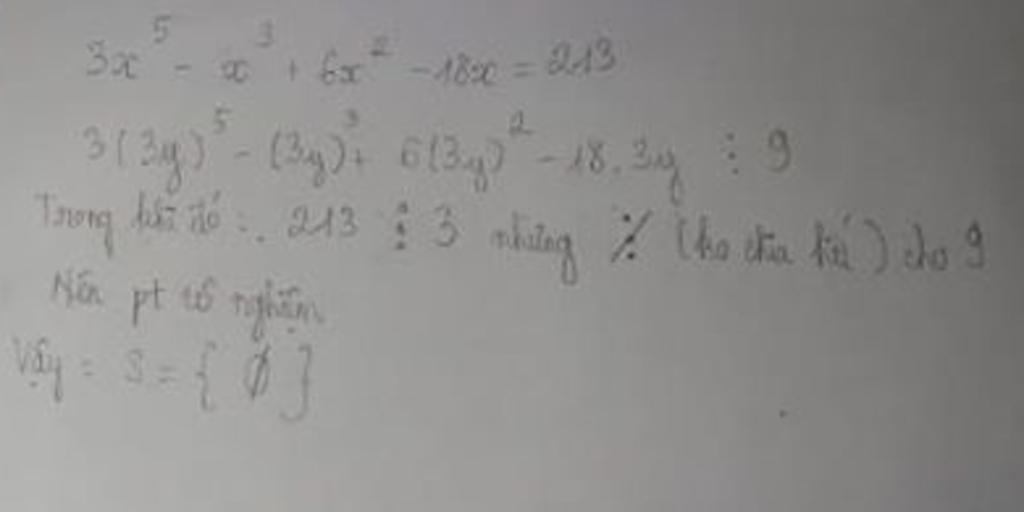 3x⁵ - x³ + 6x² - 18x = 213
3(3y)⁵ - (3y)³ + 6(3y)² - 18.3y ⋮ 9
Trong khi đó : . 213 ⋮ 3 nhưng ⋮̸ (ko chia hết) cho 9
Nên pt vô nghiệm
Vậy = S = { ∅ }